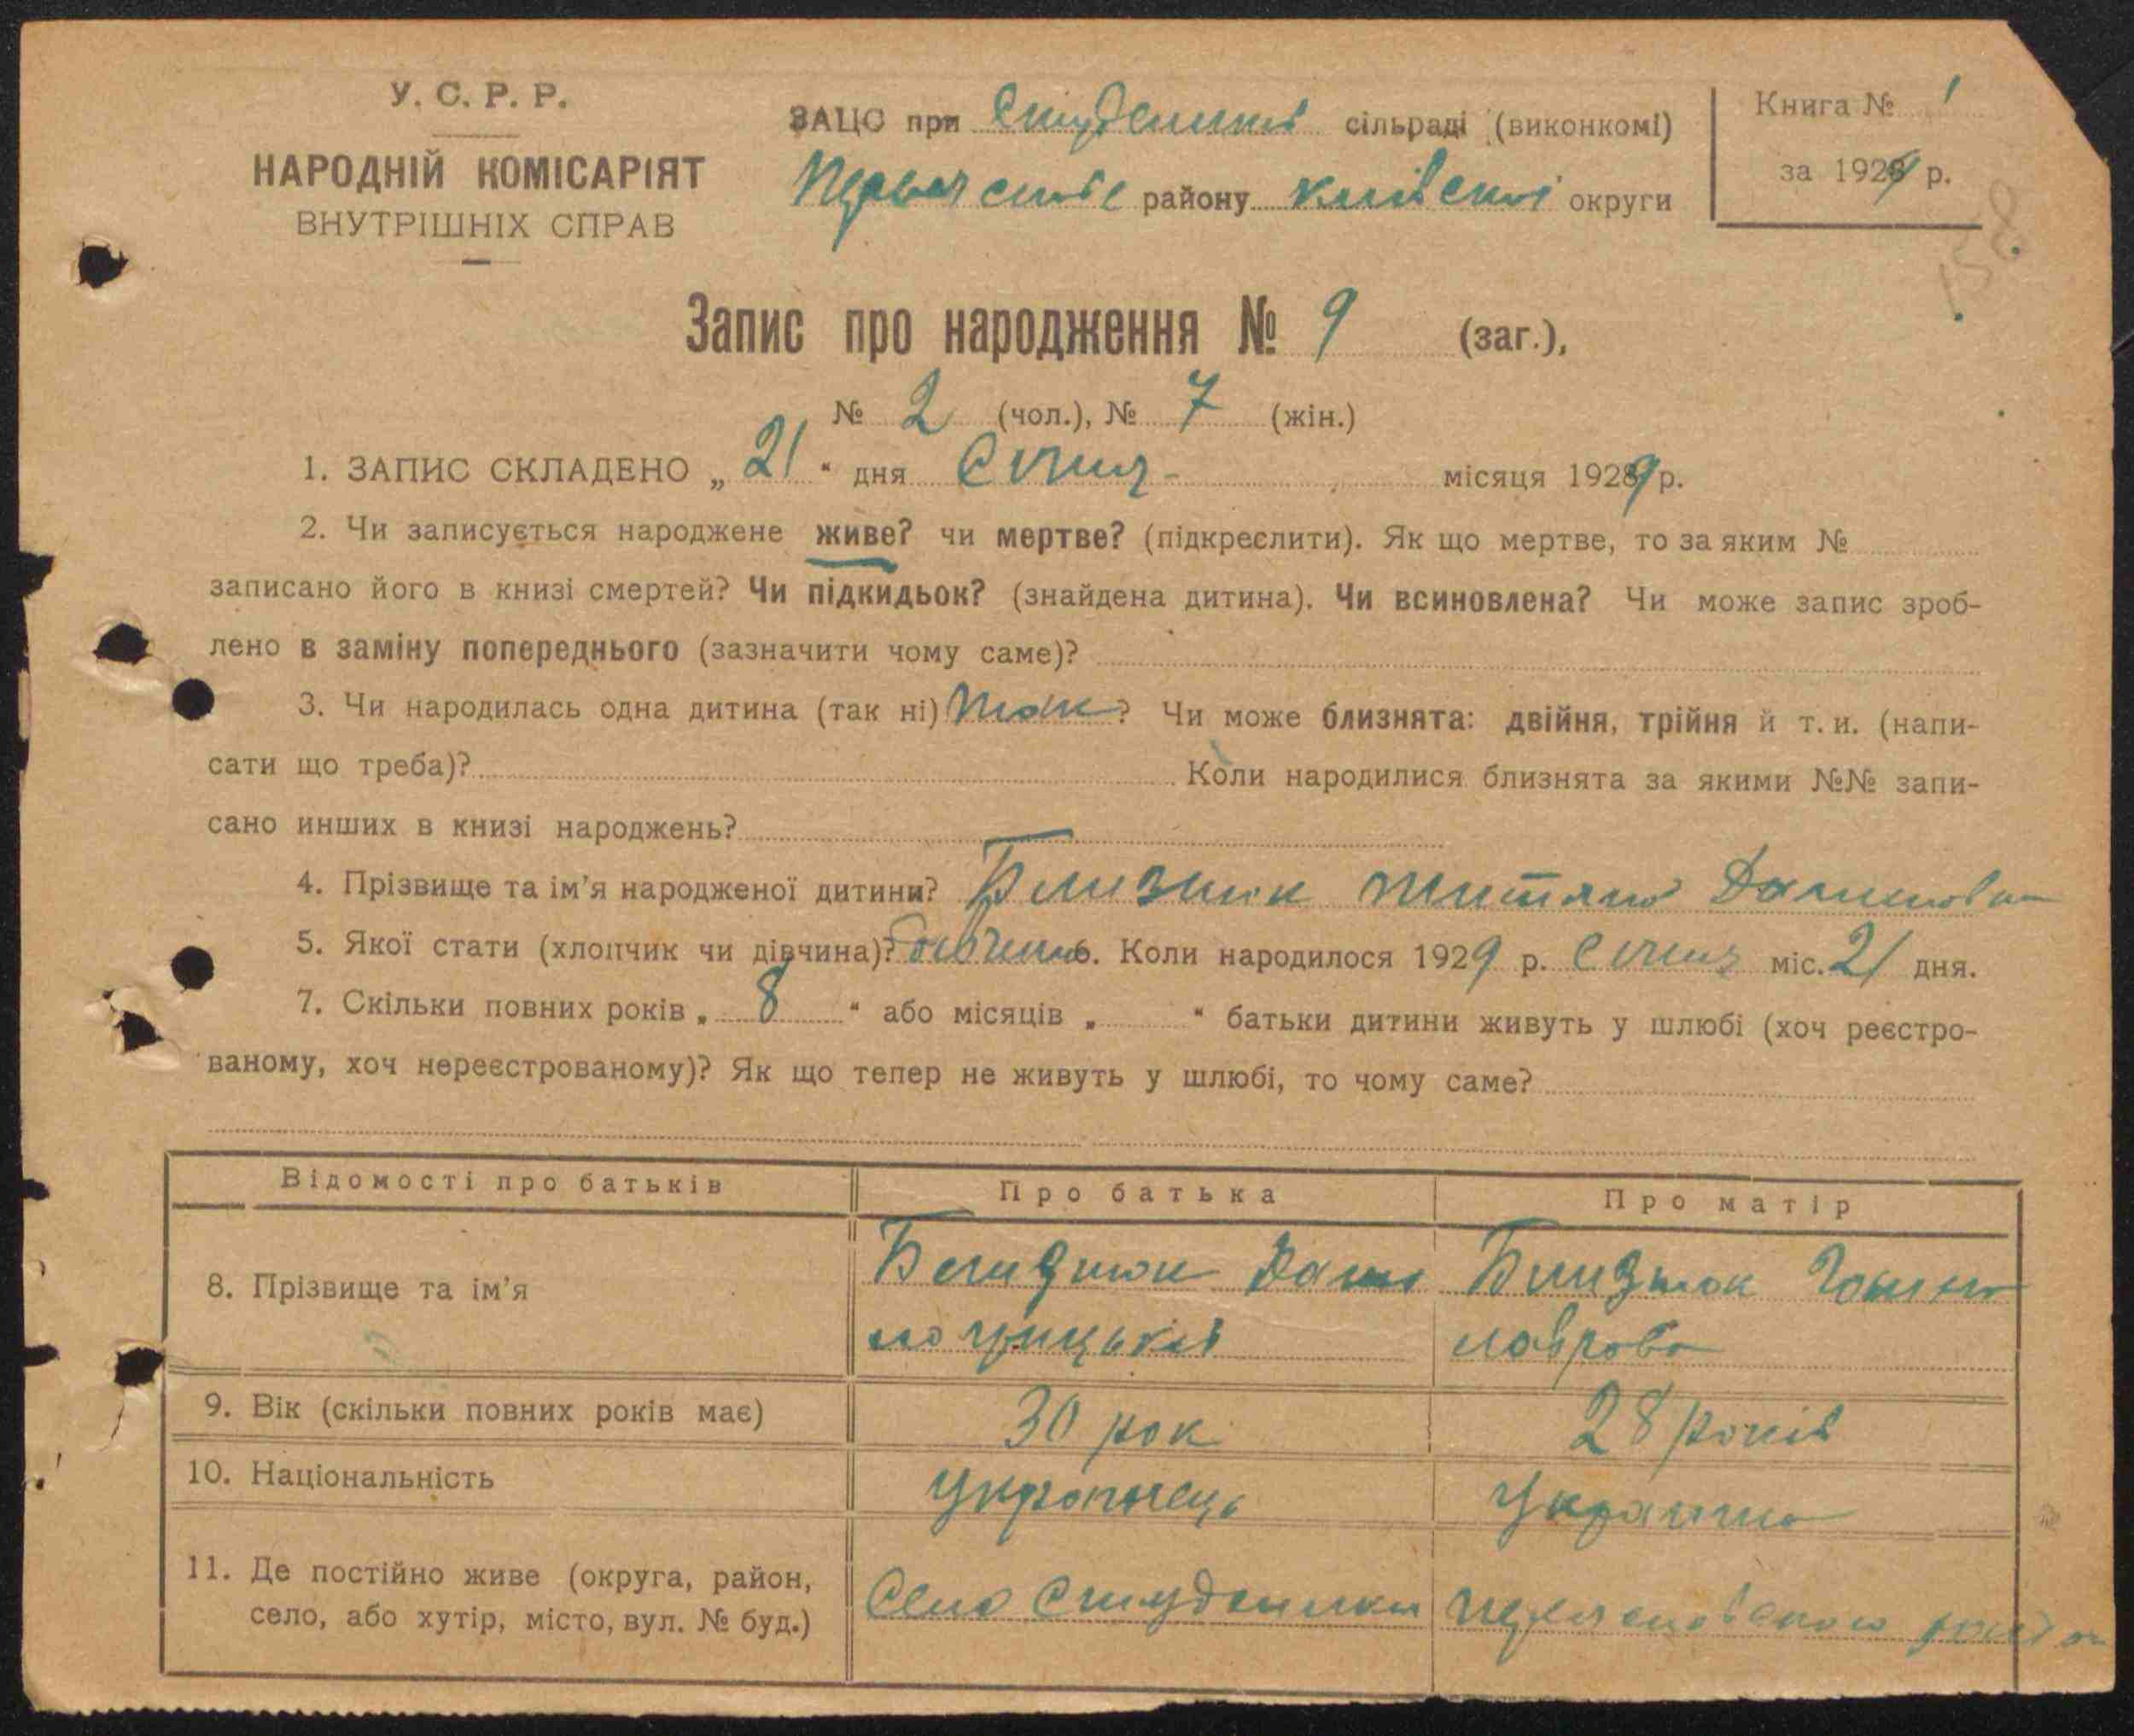 У. С. Р. Р.
НАРОДНІЙ КОМІСАРІЯТ
ВНУТРІШНІХ СПРАВ
ЗАЦС при сільраді (виконкомі)
району Київської округи
Книга № 1
за 1929 р.
158
Запис про народження № 9 (заг.),
№ 2 (чол.), № 7 (жін.)
1. ЗАПИС СКЛАДЕНО „ 21 “ дня Січня місяця 1929 р.
2. Чи записується народжене живе? чи мертве? (підкреслити). Як що мертве, то за яким №
записано його в книзі смертей? Чи підкидьок? (знайдена дитина). Чи всиновлена? Чи може запис зроб-
лено в заміну попереднього (зазначити чому саме)?
3. Чи народилась одна дитина (так ні) так? Чи може близнята: двійня, трійня й т. и. (напи-
сати що треба)? Коли народилися близнята за якими №№ запи-
сано инших в книзі народжень?
4. Прізвище та ім’я народженої дитини? Близнюк
5. Якої стати (хлопчик чи дівчина)? дівчина 6. Коли народилося 1929 р. Січня міс. 21 дня.
7. Скільки повних років „ 8 “ або місяців „ “ батьки дитини живуть у шлюбі (хоч реєстро-
ваному, хоч нереєстрованому)? Як що тепер не живуть у шлюбі, то чому саме?
Відомості про батьків Про батька Про матір
8. Прізвище та ім’я Близнюк Близнюк
9. Вік (скільки повних років має) 30 рок 28 років
10. Національність Українець Українка
11. Де постійно живе (округа, район,
село, або хутір, місто, вул. № буд.) Село